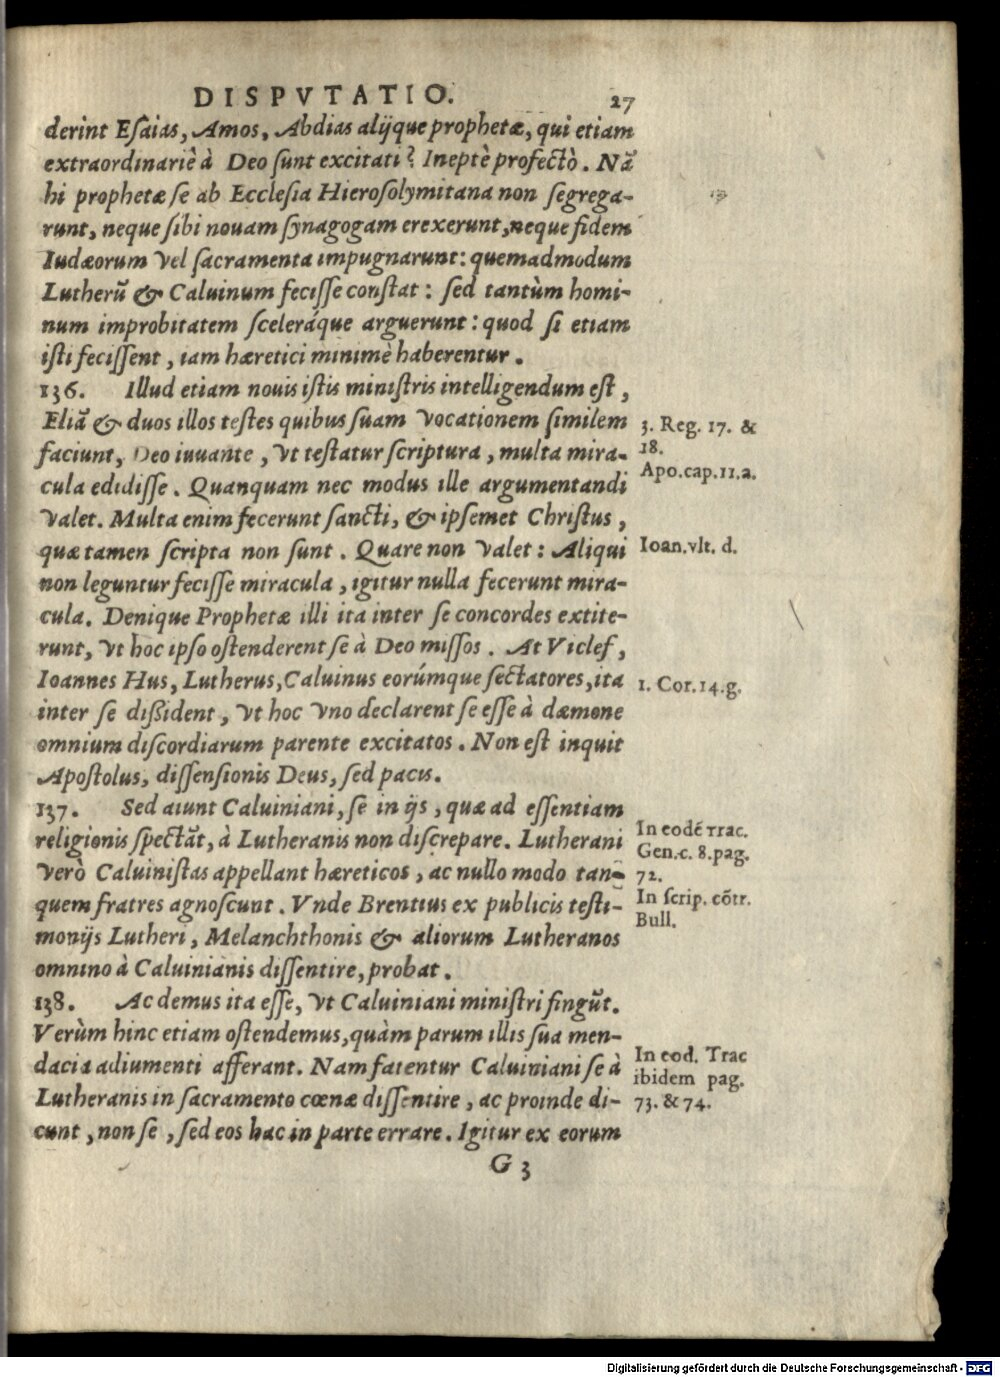 DISPVTATIO. 27
derint Eſaias, Amos, Abdias alijque prophetæ, qui etiam
extraordinariè à Deo ſunt excitati? Ineptè profectò. Nã
hi prophetæ ſe ab Eccleſia Hieroſolymitana non ſegrega-
runt, neque ſibi nouam ſynagogam erexerunt, neque fidem
Iudæorum vel ſacramenta impugnarunt: quemadmodum
Lutherũ & Caluinum feciſſe conſtat: ſed tantùm homi-
num improbitatem ſceleráque arguerunt: quod ſi etiam
iſti feciſſent, iam hæretici minimè haberentur.
136. Illud etiam nouis iſtis miniſtris intelligendum eſt,
Eliã & duos illos teſtes quibus ſuam vocationem ſimilem
3. Reg. 17. &
faciunt, Deo iuuante, vt teſtatur ſcriptura, multa mira-
18.
cula edidiſſe. Quanquam nec modus ille argumentandi
Apo.cap.11.a.
valet. Multa enim fecerunt ſancti, & ipſemet Chriſtus,
quæ tamen ſcripta non ſunt. Quare non valet: Aliqui
Ioan.vlt. d.
non leguntur feciſſe miracula, igitur nulla fecerunt mira-
cula. Denique Prophetæ illi ita inter ſe concordes extite-
runt, vt hoc ipſo oſtenderent ſe à Deo miſſos. At Viclef,
Ioannes Hus, Lutherus, Caluinus eorúmque ſectatores, ita
1. Cor.14.g.
inter ſe dißident, vt hoc vno declarent ſe eſſe à dæmone
omnium diſcordiarum parente excitatos. Non eſt inquit
Apoſtolus, diſſenſionis Deus, ſed pacis.
137. Sed aiunt Caluiniani, ſe in ijs, quæ ad eſſentiam
religionis ſpectãt, à Lutheranis non diſcrepare. Lutherani
In eodẽ Trac.
Gen.c. 8.pag.
verò Caluiniſtas appellant hæreticos, ac nullo modo tan-
72.
quem fratres agnoſcunt. Vnde Brentius ex publicis teſti-
In ſcrip. cõtr.
Bull.
monijs Lutheri, Melanchthonis & aliorum Lutheranos
omnino à Caluinianis diſſentire, probat.
138. Ac demus ita eſſe, vt Caluiniani miniſtri fingũt.
Verùm hinc etiam oſtendemus, quàm parum illis ſua men-
dacia adiumenti afferant. Nam fatentur Caluiniani ſe à
In eod. Trac
ibidem pag.
Lutheranis in ſacramento cœnæ diſſentire, ac proinde di-
73. & 74.
cunt, non ſe, ſed eos hac in parte errare. Igitur ex eorum
G 3
Digitalisierung gefördert durch die Deutsche Forschungsgemeinschaft - DFG